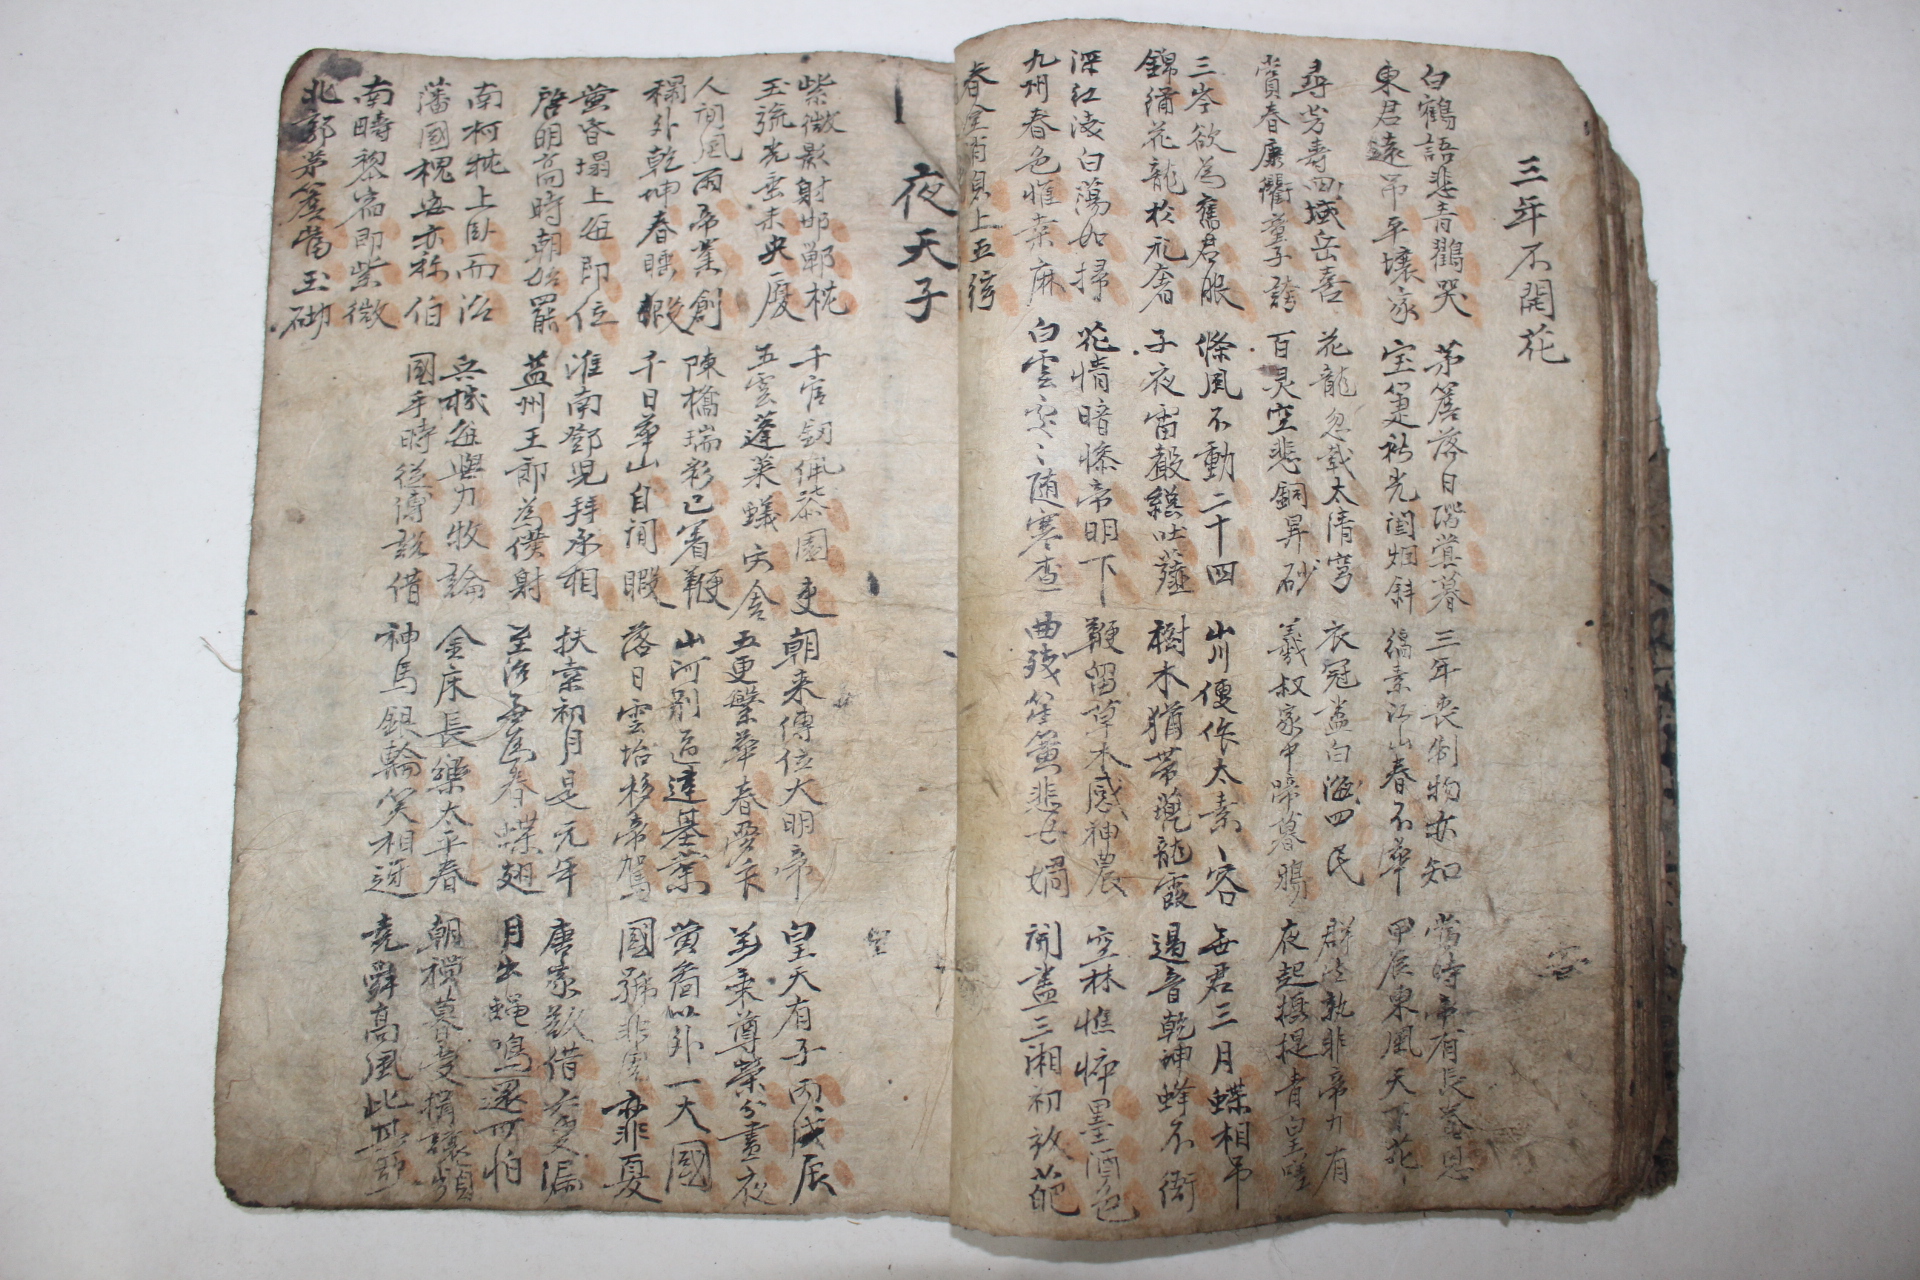 三年不開花
白鶴語悲青鸛哭
東君遠吊平壤家
茅簷落日階蓂暮
宝光閨烟斜
三年喪制物亦知
縞素江山春不華
當時帝有長養恩
甲辰東風天下花
尋芳壽域岳喜
賞春康衢童子誇
花龍忽戴太清穹
百灵空悲銅昇砂
衣冠盡白海四民
羲叔家中啼暮鴉
群生孰非帝力有
夜起攝提青皇嗟
三岑欲為舊君服
錦繡花龍於元奢
條風不動二十四
子夜雷吐薤
山川便作太素容
樹木猶帶龍霞
每君三月蝶相吊
遏音乾坤蜂不衙
深紅浅白蕩如掃
九州春色惟桑麻
花情暗慘帝明下
白雲寥〻随寒査
鞭留草木感神農
曲殘笙簧悲女媧
空林憔悴墨酒色
開盡三湘初放葩
春消息上五絃
夜天子
紫微影射邯鄲枕
玉流光垂未央廈
千官劒佩漆園吏
五雲蓬萊蟻穴舍
朝来傳位大明帝
五更繁華春雪下
皇天有子丙戊辰
萬乘尊榮分晝夜
人间風雨帝業創
欄外乾坤春睡暇
陳橋瑞彩已着鞭
千日華山自閒暇
山河別區達基業
落日雲坮移帝駕
黄以外一大國
國號非周亦非夏
黄昏塌上每即位
啓明高時朝始罷
淮南鄧児拜承相
益州王郎為僕射
扶桑初月是元年
至治無為春蝶翅
唐家歎借六更漏
月出蝇鳴還可怕
南柯枕上卧而治
藩國槐安亦称伯
兵機每與力牧論
國手時從傅説借
金床長樂太平春
神馬銀輪笑相迓
朝禪暮受揖讓頻
堯舜高風此其亞
南畤黎宿即紫微
北郭茅簷當玉砌